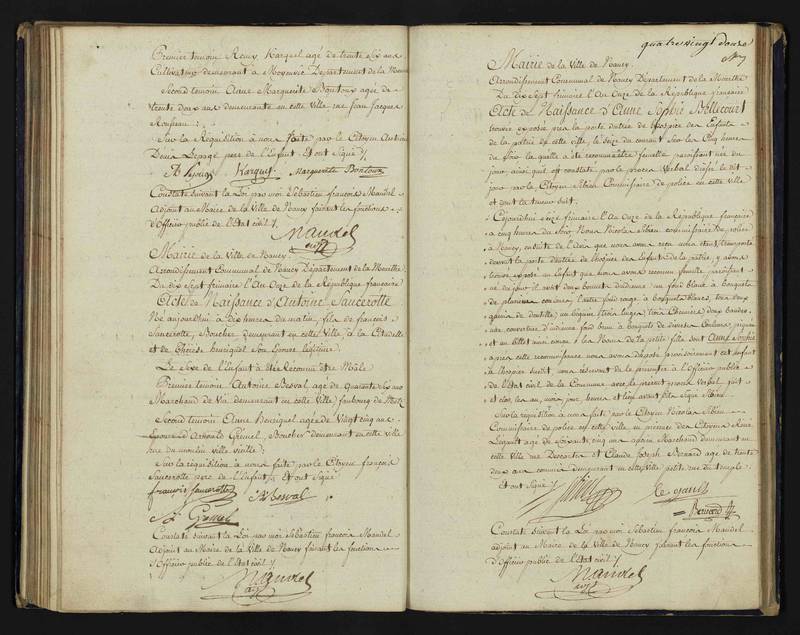 Premier temoin Remy Harquel agé de trente six ans
Cultivateur demeurant a Moyenvic Département de la
Second temoin Anne Marguerite Bontoux agée de
trente deux ans demeurante en cette Ville rue Jean Jacques
Rousseau ;
Sur la Réquisition à nous faite par le Citoyen
pere de l'Enfant. Et ont Signé ./.
Marguerite Bontoux
Constaté suivant la Loi par moi Sébastien françois Mandel
Adjoint au Maire de la Ville de Nancy faisant les fonctions
d'Officier public de l'Etat civil ./.
Mandel
adj
Mairie de la Ville de Nancy.
Arrondissement Communal de Nancy Département de la Meurthe
Du dix Sept frimaire l'An Onze de la République française
Acte de Naissance d'Antoine Saucerotte
Né aujourd'hui à dix heures du matin, fils de françois
Saucerotte, Boucher demeurant en cette Ville, à la Citadelle
et de Thérèse henriquel Son Epouse légitime.
Le Sexe de l'Enfant a été Reconnu être Mâle
Premier temoin Antoine Besval agé de quarante six ans
Marchand de Vin demeurant en cette Ville, faubourg de Metz
Second temoin Anne henriquel agée de Vingt cinq ans
Epouse d' Boucher demeurant en cette Ville
rue du moulin Ville vieille ;
Sur la réquisition à nous faite par le Citoyen françois
Saucerotte pere de l'Enfant, Et ont Signé
françois Saucerotte
Besval
Constaté suivant la Loi par moi Sébastien françois Mandel
Adjoint au Maire de la Ville de Nancy faisant les fonctions
d'Officier public de l'Etat civil ./.
Mandel
adj
quatre vingt douze
Mairie de la Ville de Nancy.
Arrondissement Communal de Nancy Département de la Meurthe
Du dix Sept frimaire l'An Onze de la République française
Acte de Naissance d'Anne Sophie Bellecourt
trouvée exposée près la porte d'entrée de l'hospice des Enfants
de la patrie de cette Ville, le seize du courant Sur les Cinq heures
du soir, laquelle a été reconnue être femelle paraissant née du
jour, ainsi qu'il est constaté par le procès Verbal dressé le dit
jour par le Citoyen Commissaire de police en cette Ville
et dont la teneur suit.
Cejourd'hui seize frimaire l'An Onze de la République française
à cinq heures du Soir. Nous Nicolas commissaire de police
à Nancy, ensuite de l'avis que nous avons reçu nous étant transporté
devant la porte d'entrée de l'hospice des Enfants de la patrie, y avons
trouvé exposé un Enfant que nous avons reconnu femelle paraissant
né de ce jour il avait deux bonnets d'indienne un fond blanc à bouquets
de plusieurs couleurs, l'autre fond rouge à bouquets blancs, trois
de dentelle, un trois langes, trois Chemises, deux
une couverture d'indienne fond brun à bouquets de diverses Couleurs,
et un billet ainsi conçu : les Noms de la petite fille sont Anne Sophie
après cette reconnaissance nous avons déposé provisoirement cet enfant
à l'hospice susdit, nous réservant de la présenter à l'Officier public
de l'Etat civil de la Commune avec le présent procès Verbal, fait
et clos, les an, mois, jour, heures et lieu avant dits. Signé
Sur la réquisition à nous faite par le Citoyen Nicolas
Commissaire de police en cette Ville en présence des Citoyens René
Legault agé de Soixante cinq ans ancien Marchand demeurant en
cette Ville rue Descartes et Claude Joseph Bernard agé de trente
deux ans commis demeurant en cette Ville petite rue du temple.
Et ont Signé ./.
Le gault
Bernard
Constaté suivant la Loi par moi Sébastien françois Mandel
adjoint au Maire de la Ville de Nancy faisant les fonctions
d'Officier public de l'Etat civil ./.
Mandel
adj